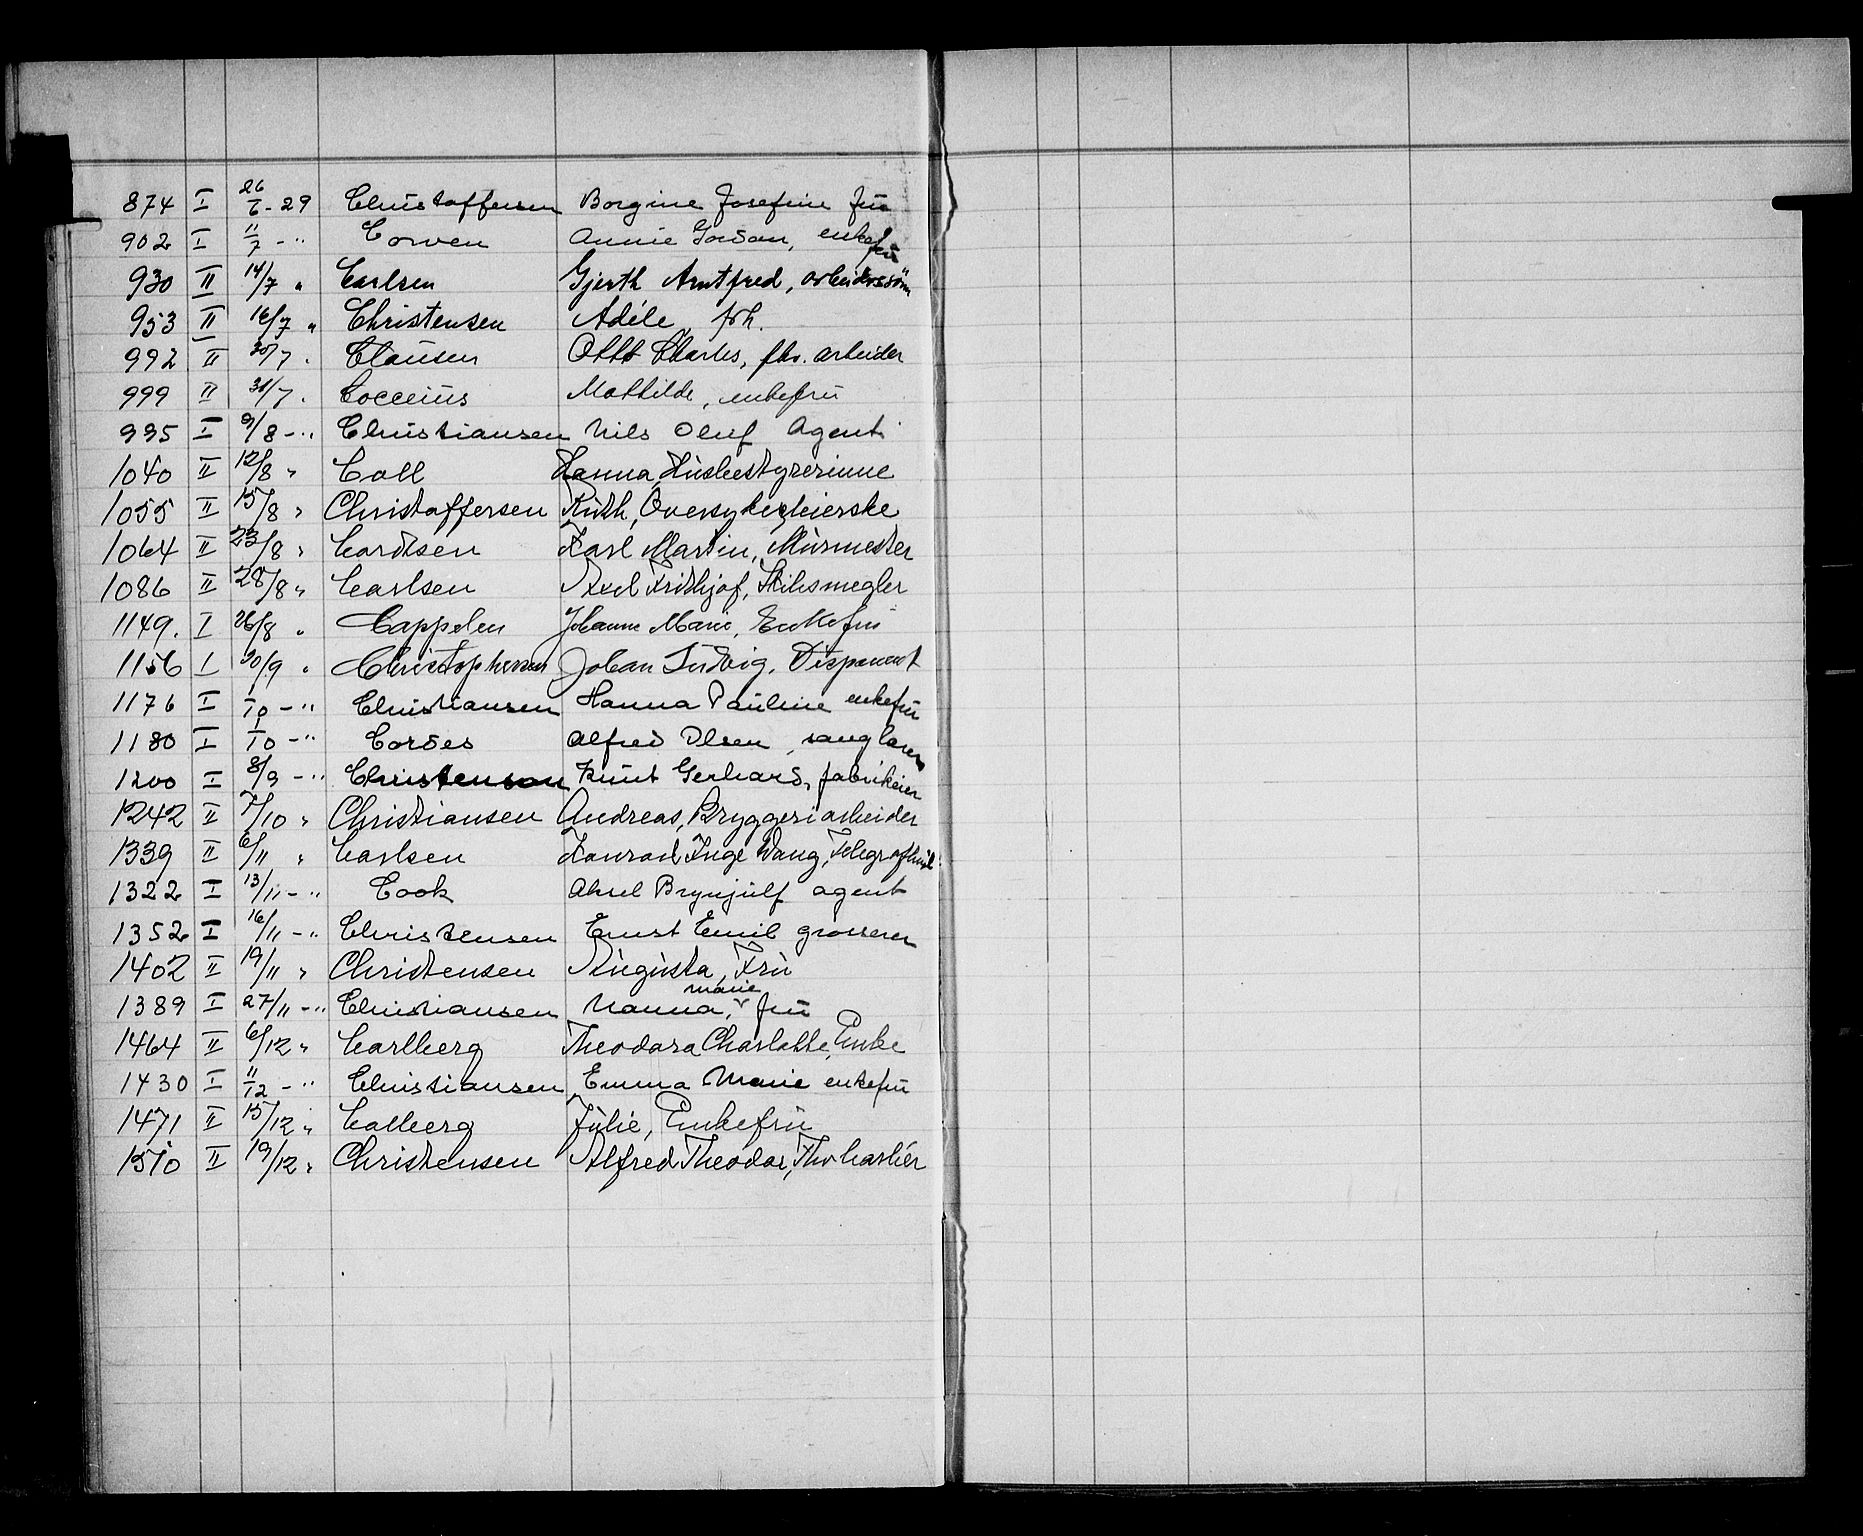 874 I 26/6-29 Christoffersen Borgine Josefine fru
902 I 11/7 -" Corven Annie Gordan, enkefru
930 II 14/7 " Carlsen Gjerth Arntfred, arbeiderssøn
953 II 16/7 " Christensen Adéle, frk.
992 II 20/7 " Clausen Otto Charles, fhv. arbeider
999 II 31/7 " Cocceius Mathilde, enkefru
995 I 9/8 -" Christiansen Nils Oluf Agent
1040 II 12/8 " Coll Hanna, Husbestyrerinne
1055 II 15/8 " Christoffersen Ruth, Oversykepleierske
1064 II 23/8 " Cardtsen Karl Martin, Murmester
1086 II 28/8 " Carlsen Axel Fridhjof, Skibsmegler
1149. I 26/8 " Cappelen Johanne Marie, Enkefru
1156 I 30/9 " Christophersen Johan Ludvig, Disponent
1176 I 1/10 -" Christiansen Hanna Pauline enkefru
1180 I 1/10 -" Cordes Alfred Olsen, sanglærer
1200 I 8/9 -" Christenson Knut Gerhard, fabrikeier
1242 II 7/10 " Christiansen Andreas, Bryggeriarbeider
1339 II 6/11 " Carlsen Konrad Inge Wang,
1322 I 13/11 -" Cook Aksel Brynjulf agent
1352 I 16/11 -" Christensen Ernst Emil grosserer
1402 II 19/11 " Christensen Augusta, Fru
1389 I 27/11 -" Christiansen Nanna, Marie fru
1464 II 6/12 " Carlberg Theodora Charlotte, Enke
1430 I 11/12 -" Christiansen Emma Marie enkefru
1471 II 15/12 " Calberg Julie, Enkefru
1510 II 19/12 " Christensen Alfred Theodor,